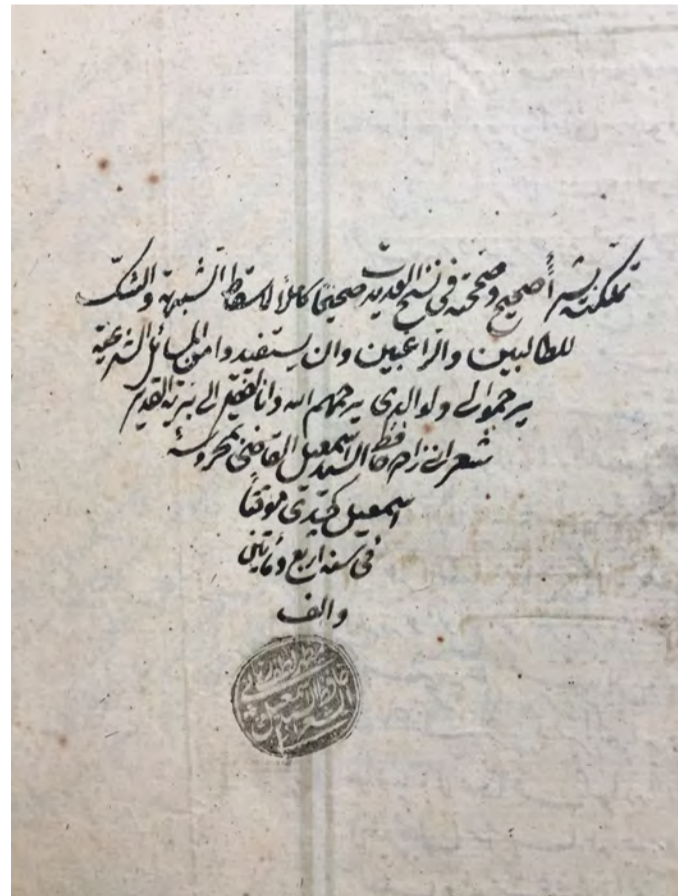 تملكته بشراء صحيح وصححته في نسخ العديدات صحيحا كاملا لاسقاط الشبهة والشك
للطالبين والراغبين وان يستفيدوا من المسائل الشرعية
يرحموا لي ولوالدي يرحمهم الله وانا الفقير الى ربه القدير
شعراني زاده حافظ السيد اسمعيل القاضي بمحروسة
اسمعيل كچيدي موقتا
في سنة اربع ومأتين
والف